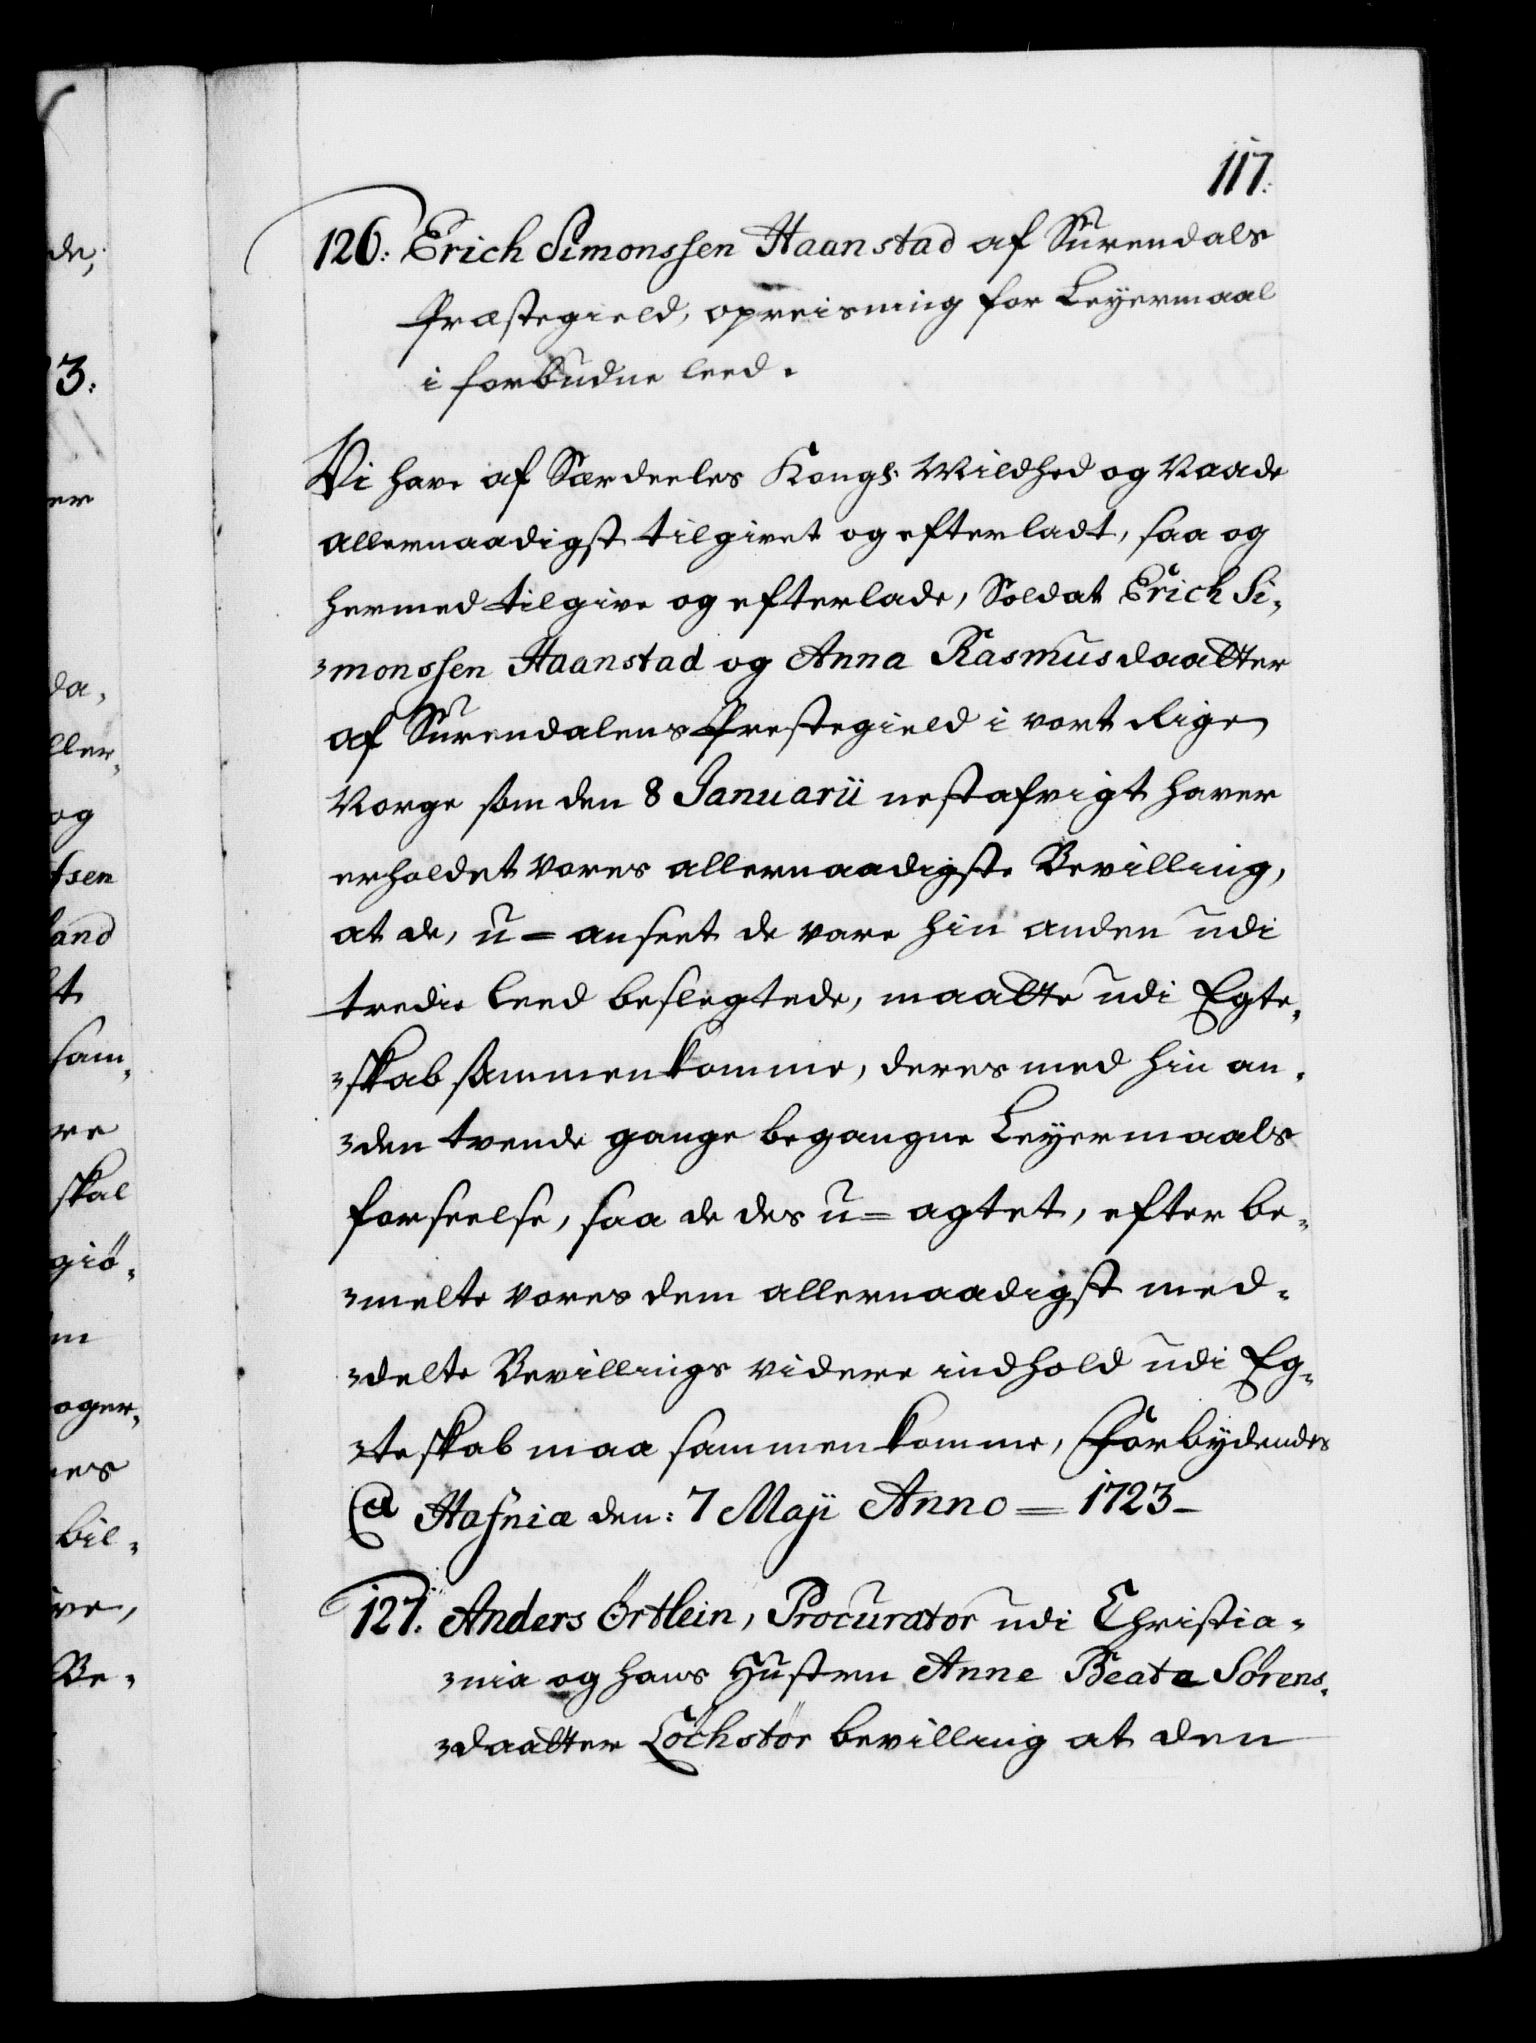 117.
126: Erich Simonssen Haanstad af Surendals
Præstegield, opreisning for Leyermaal
i forbudne leed.
Vi have af Særdeeles Kongl: Mildhed og Naade
allernaadigst tilgivet og efterladt, saa og
hermed tilgive og efterlade, Soldat Erich Si-
monssen Haanstad og Anna Rasmusdaatter
af Surendalens Præstegield i vort Rige
Norge som den 8 Januarii nestafvigt haver
erholdet vores allernaadigste Bevilling,
at de, u=anseet de vare hin anden udi
tredie leed beslegtede, maatte udi Egte-
skab sammenkomme, deres med hin an-
den tvende gange begangne Leyermaals
forseelse, saa de des u=agtet, efter be-
melte vores dem allernaadigst med-
delte Bevillings videre indhold udi Eg-
teskab maa sammenkomme, Forbydendes
Hafniæ den: 7 Maji Anno = 1723-
127. Anders Örtlein, Procurator udi Christia-
nia og hans Hustru Anne Beata Sörens-
daatter Löchstör bevilling at den
de,
3:
er
da,
ller-
og
sen
land
t
sam-
re
skal
giö-
m
oger-
es
bil-
ve,
Be-